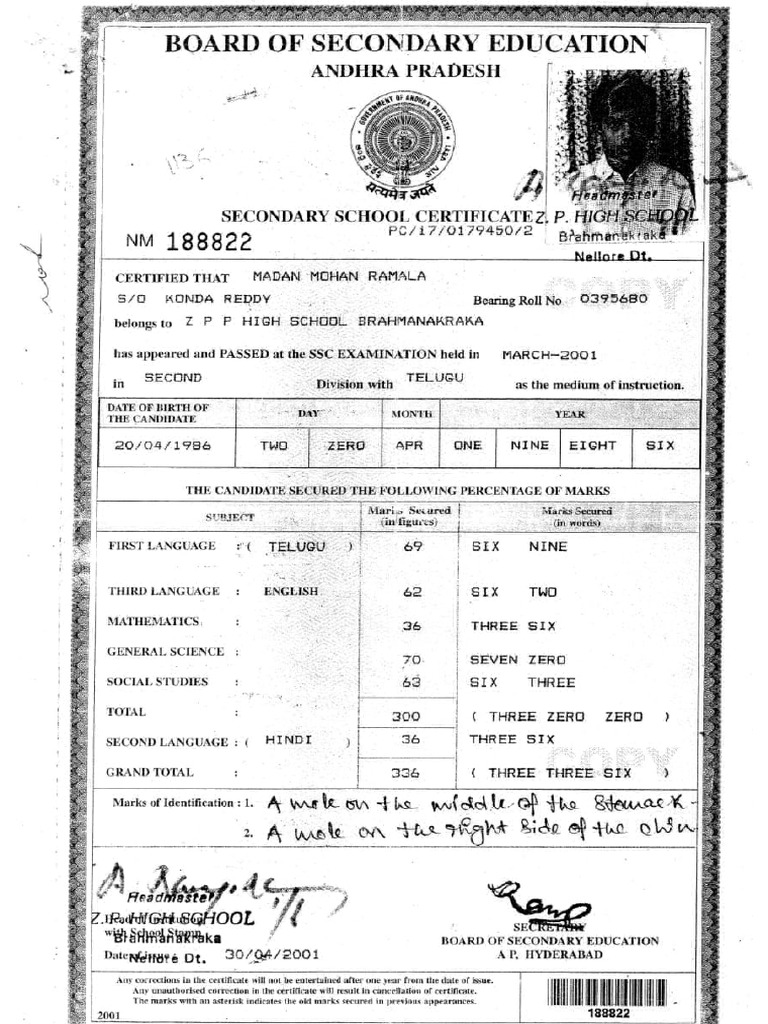 BOARD OF SECONDARY EDUCATION
ANDHRA PRADESH
GOVERNMENT OF ANDHRA PRADESH
सत्यमेव जयते
1136
SECONDARY SCHOOL CERTIFICATE
PC/17/0179450/2
NM 188822
Headmaster
Z. P. HIGH SCHOOL
Brahmanakraka
Nellore Dt.
COPY
CERTIFIED THAT MADAN MOHAN RAMALA
S/O KONDA REDDY Bearing Roll No 0395680
belongs to Z P P HIGH SCHOOL BRAHMANAKRAKA
has appeared and PASSED at the SSC EXAMINATION held in MARCH-2001
in SECOND Division with TELUGU as the medium of instruction.
DATE OF BIRTH OF THE CANDIDATE DAY MONTH YEAR
20/04/1986 TWO ZERO APR ONE NINE EIGHT SIX
THE CANDIDATE SECURED THE FOLLOWING PERCENTAGE OF MARKS
SUBJECT Marks Secured (in figures) Marks Secured (in words)
FIRST LANGUAGE : ( TELUGU ) 69 SIX NINE
THIRD LANGUAGE : ENGLISH 62 SIX TWO
MATHEMATICS : 36 THREE SIX
GENERAL SCIENCE : 70 SEVEN ZERO
SOCIAL STUDIES : 63 SIX THREE
TOTAL : 300 ( THREE ZERO ZERO )
SECOND LANGUAGE : ( HINDI ) 36 THREE SIX
GRAND TOTAL : 336 ( THREE THREE SIX )
COPY
Marks of Identification : 1. A mole on the middle of the Stomack
2. A mole on the right side of the chin
Headmaster
Z.P. HIGH SCHOOL
with School Stamp
Brahmanakraka
Nellore Dt. 30/04/2001
SECRETARY
BOARD OF SECONDARY EDUCATION
A P, HYDERABAD
Any corrections in the certificate will not be entertained after one year from the date of issue.
Any unauthorised correction in the certificate will result in cancellation of certificate.
The marks with an asterisk indicates the old marks secured in previous appearances.
2001
188822